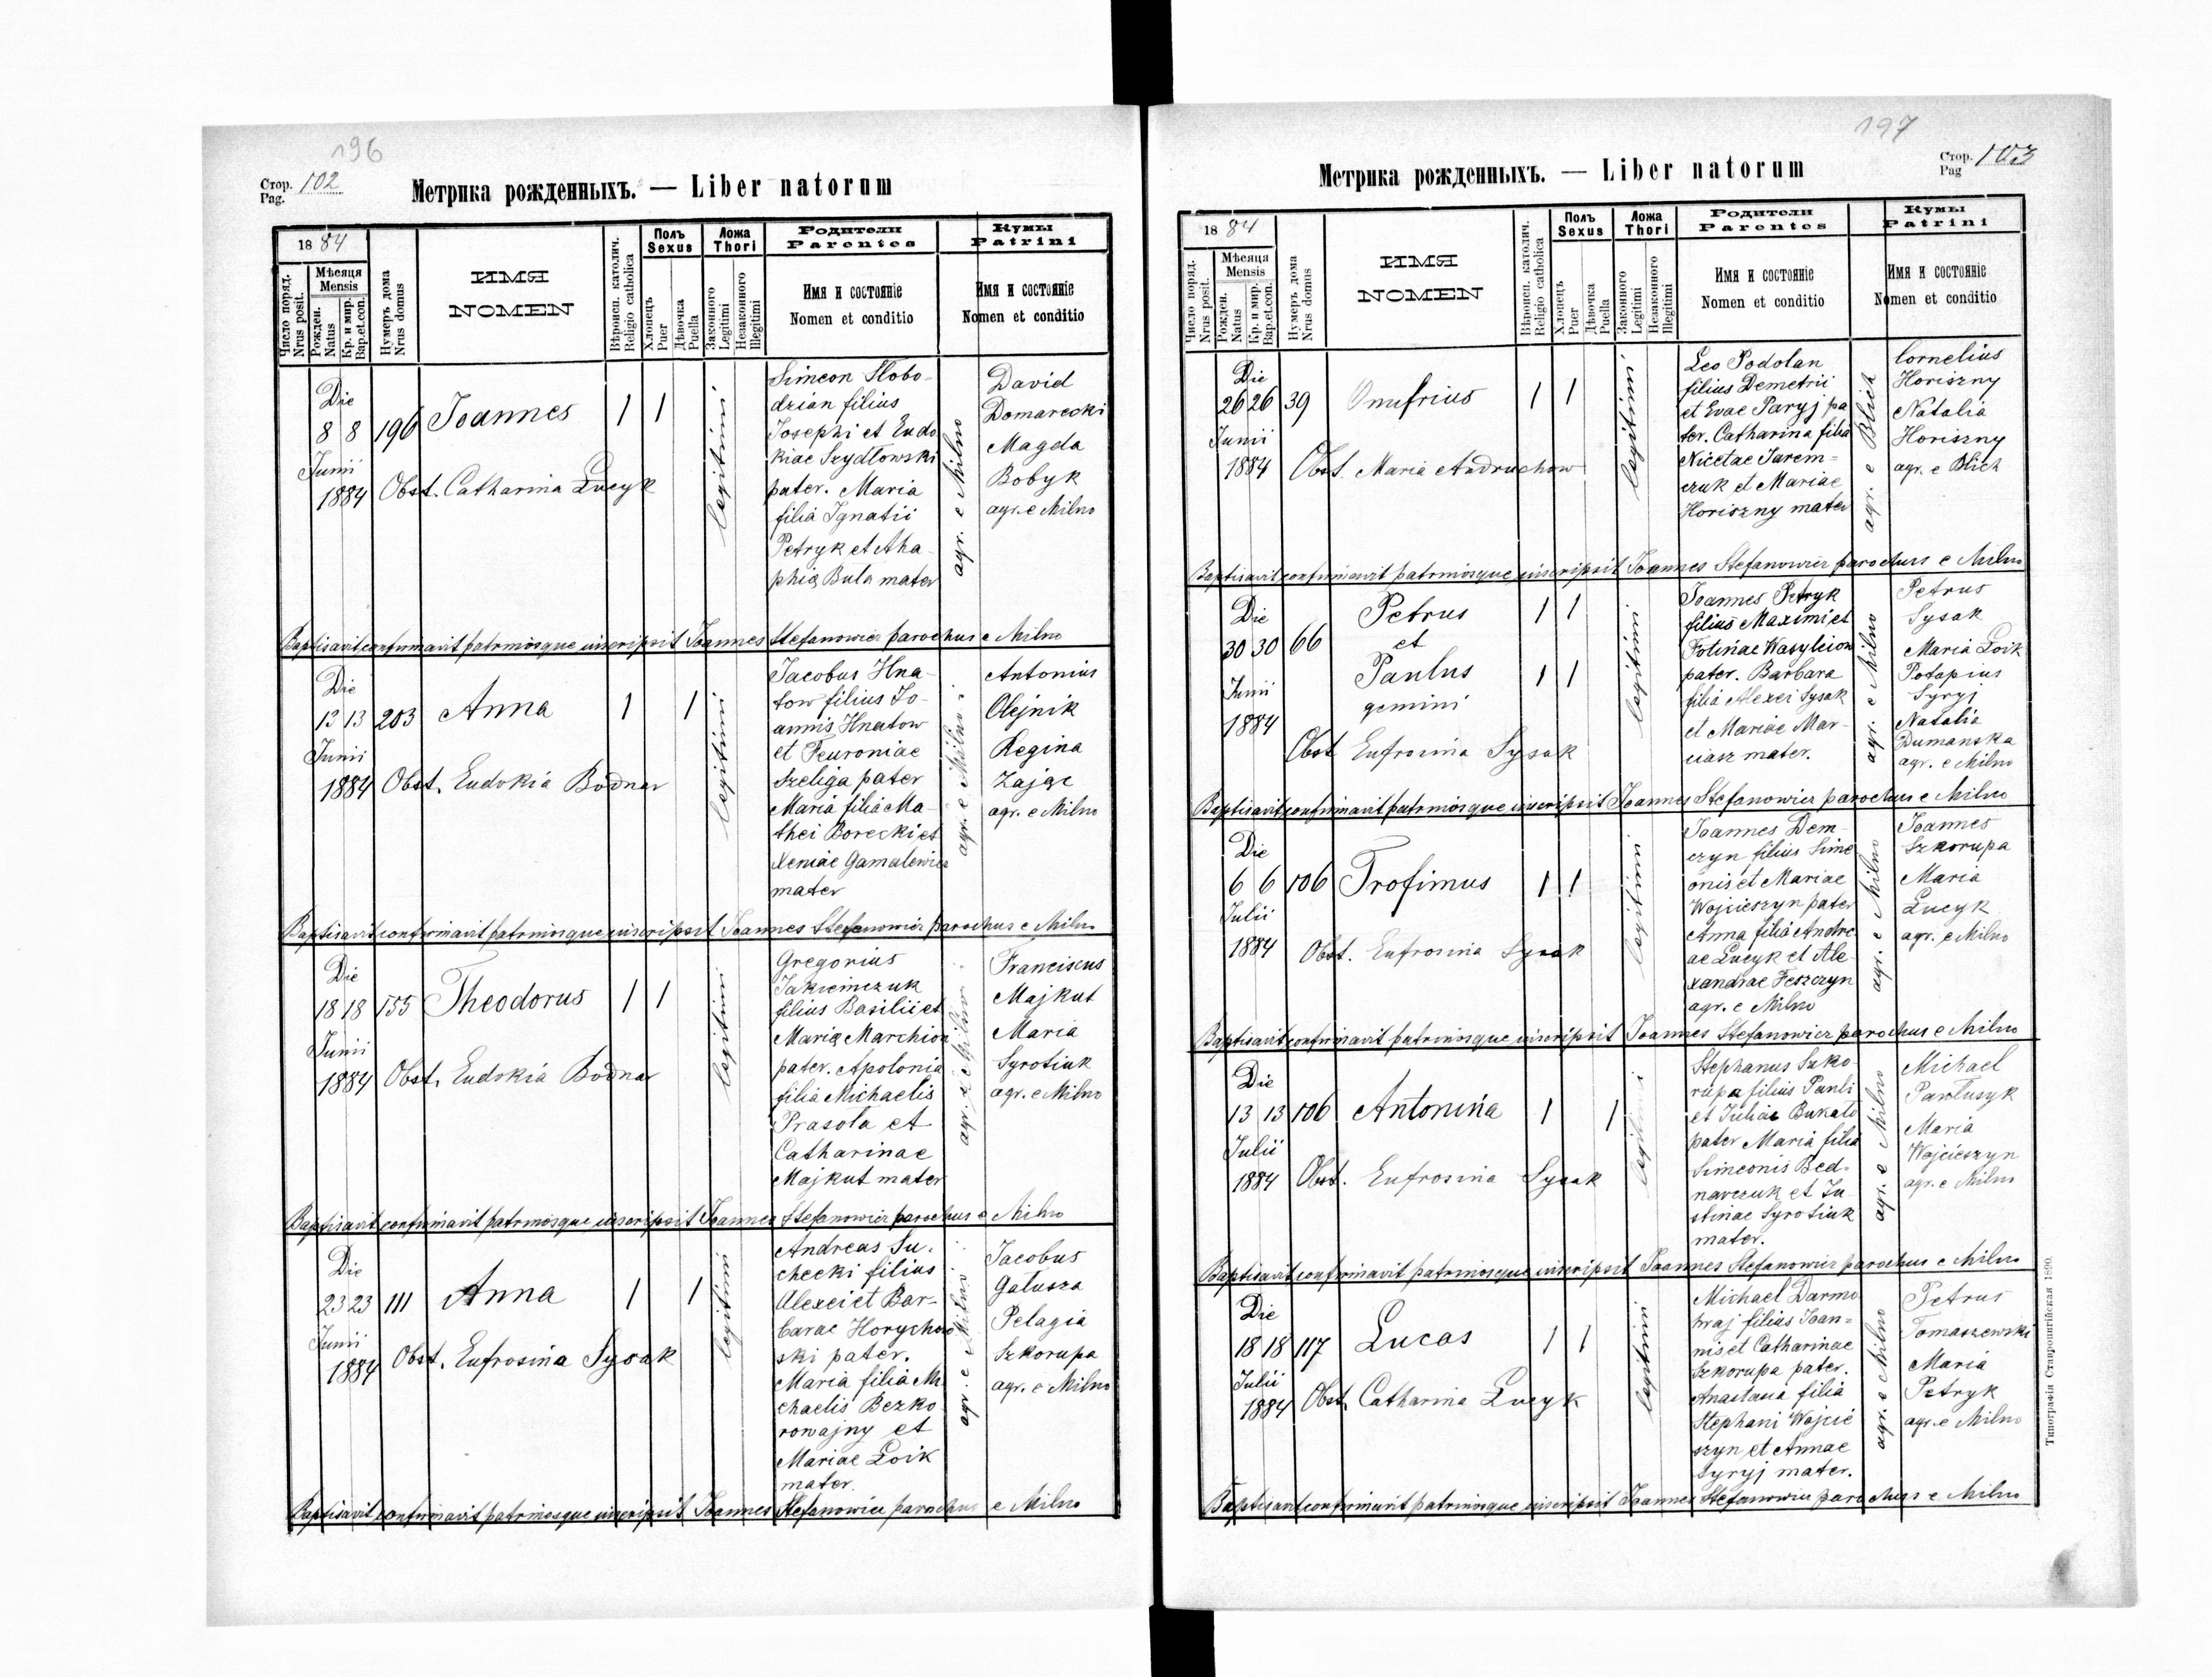 196
Стор. 102
Pag.
Метрика рожденныхъ. — Liber natorum
18 84
Число поряд.
Nrus posit.
Мѣсяца
Mensis
Рожден.
Natus
Кр. и мир.
Bap.et.con.
Нумеръ дома
Nrus domus
ИМЯ
NOMEN
Вѣроисп. католич.
Religio catholica
Полъ
Sexus
Хлопецъ
Puer
Дѣвочка
Puella
Ложа
Thori
Законного
Legitimi
Незаконного
Illegitimi
Родители
Parentes
Имя и состояніе
Nomen et conditio
Кумы
Patrini
Имя и состояніе
Nomen et conditio
Die
8 8 196 Joannes 1 1
Junii
1884 Obst. Catharina Łucyk
legitimi
Simeon Słobo-
dzian filius
Josephi et Eudo
kiae Szydłowski
pater. Maria
filia Ignatii
Petryk et Aha-
phią Bula mater
agr. e Milno
David
Domarecki
Magda
Bobyk
agr. e Milno
Baptisavit confirmavit patrinosque inscripsit Joannes Stefanowicz parochus e Milno
Die
12 13 203 Anna 1 1
Junii
1884 Obst. Eudokia Bodnar
legitimi
Jacobus Hna-
tow filius Jo-
annis Hnatow
et Feuroniae
Szeliga pater
Maria filia Ma-
thei Borecki et
Xeniae Gamalewicz
mater
agr. e Milno
Antonius
Olejnik
Regina
Zając
agr. e Milno
Baptisavit confirmavit patrinosque inscripsit Joannes Stefanowicz parochus e Milno
Die
18 18 155 Theodorus 1 1
Junii
1884 Obst. Eudokia Bodnar
legitimi
Gregorius
Jakiemczuk
filius Basilii et
Marię Marchion
pater. Apolonia
filia Michaelis
Prasoła et
Catharinae
Majkut mater
agr. e Milno
Franciscus
Majkut
Maria
Syrotiuk
agr. e Milno
Baptisavit confirmavit patrinosque inscripsit Joannes Stefanowicz parochus e Milno
Die
23 23 111 Anna 1 1
Junii
1884 Obst. Eufrosina Sysak
legitimi
Andreas Su-
checki filius
Alexei et Bar-
barae Horychow
ski pater.
Maria filia Mi
chaelis Bezko
rowajny et
Mariae Łoik
mater.
agr. e Milno
Jacobus
Gałusza
Pelagia
Szkorupa
agr. e Milno
Baptisavit confirmavit patrinosque inscripsit Joannes Stefanowicz parochus e Milno
197
Стор. 103
Pag
Метрика рожденныхъ. — Liber natorum
18 84
Число поряд.
Nrus posit.
Мѣсяца
Mensis
Рожден.
Natus
Кр. и мир.
Bap.et.con.
Нумеръ дома
Nrus domus
ИМЯ
NOMEN
Вѣроисп. католич.
Religio catholica
Полъ
Sexus
Хлопецъ
Puer
Дѣвочка
Puella
Ложа
Thori
Законного
Legitimi
Незаконного
Illegitimi
Родители
Parentes
Имя и состояніе
Nomen et conditio
Кумы
Patrini
Имя и состояніе
Nomen et conditio
Die
26 26 39 Onufrius 1 1
Junii
1884 Obst. Maria Andruchow
legitimi
Leo Podolan
filius Demetrii
et Evae Paryj pa
ter. Catharina filia
Nicetae Jarem-
czuk et Mariae
Horiszny mater
agr. e Blich
Cornelius
Horiszny
Natalia
Horiszny
agr. e Blich
Baptisavit confirmavit patrinosque inscripsit Joannes Stefanowicz parochus e Milno
Die
30 30 66 Petrus 1 1
et
Paulus 1 1
Junii
gemini
1884
Obst Eufrosina Sysak
legitimi
Joannes Petryk
filius Maximi et
Fotinae Wasylciow
pater. Barbara
filia Alexei Sysak
et Mariae Mar-
ciasz mater.
agr. e Milno
Petrus
Sysak
Maria Łoik
Potapius
Syryj
Natalia
Dumanska
agr. e Milno
Baptisavit confirmavit patrinosque inscripsit Joannes Stefanowicz parochus e Milno
Die
6 6 106 Trofimus 1 1
Julii
1884 Obst. Eufrosina Sysak
legitimi
Joannes Dem-
czyn filius Sime
onis et Mariae
Wojcieszyn pater
Anna filia Andre
ae Łucyk et Ale-
xandrae Feszczyn
agr. e Milno
agr. e Milno
Joannes
Szkorupa
Maria
Łucyk
agr. e Milno
Baptisavit confirmavit patrinosque inscripsit Joannes Stefanowicz parochus e Milno
Die
13 13 106 Antonina 1 1
Julii
1884 Obst. Eufrosina Sysak
legitimi
Stephanus Szko-
rupa filius Pauli
et Juliae Bukato
pater Maria filia
Simeonis Bed-
narczuk et Ju-
stinae Syrotiuk
mater.
agr. e Milno
Michael
Pawlusyk
Maria
Wojcieszyn
agr. e Milno
Baptisavit confirmavit patrinosque inscripsit Joannes Stefanowicz parochus e Milno
Die
18 18 117 Lucas 1 1
Julii
1884 Obst. Catharina Łucyk
legitimi
Michael Darmo
hraj filius Joan-
nis et Catharinae
Szkorupa pater.
Anastasia filia
Stephani Wojcie
szyn et Annae
Syryj mater.
agr. e Milno
Petrus
Tomaszewski
Maria
Petryk
agr. e Milno
Baptisavit confirmavit patrinosque inscripsit Joannes Stefanowicz parochus e Milno
Типографія Ставропигійская 1890.